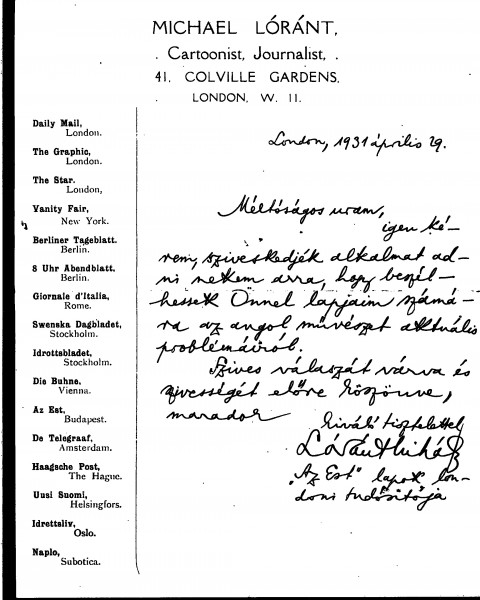 MICHAEL LÓRÁNT,
. Cartoonist, Journalist, .
41. COLVILLE GARDENS,
LONDON, W. 11.
Daily Mail,
London.
The Graphic,
London.
The Star.
London,
Vanity Fair,
New York.
Berliner Tageblatt.
Berlin.
8 Uhr Abendblatt,
Berlin.
Giornale d'Italia,
Rome.
Swenska Dagbladet,
Stockholm.
Idrottsbladet,
Stockholm.
Die Buhne,
Vienna.
Az Est,
Budapest.
De Telegraaf,
Amsterdam.
Haagsche Post,
The Hague.
Uusi Suomi,
Helsingfors.
Idrettsliv,
Oslo.
Naplo,
Subotica.
London, 1931 április 29.
Méltóságos uram,
igen ké-
rem, sziveskedjék alkalmat ad-
ni nekem arra, hogy beszél-
hessek Önnel lapjaim számá-
ra az angol művészet aktuális
problémáiról.
Szives válaszát várva és
szivességét előre köszönve,
maradok
kiváló tisztelettel
Lóránt Mihály
"Az Est" lapok lon-
doni tudósitója